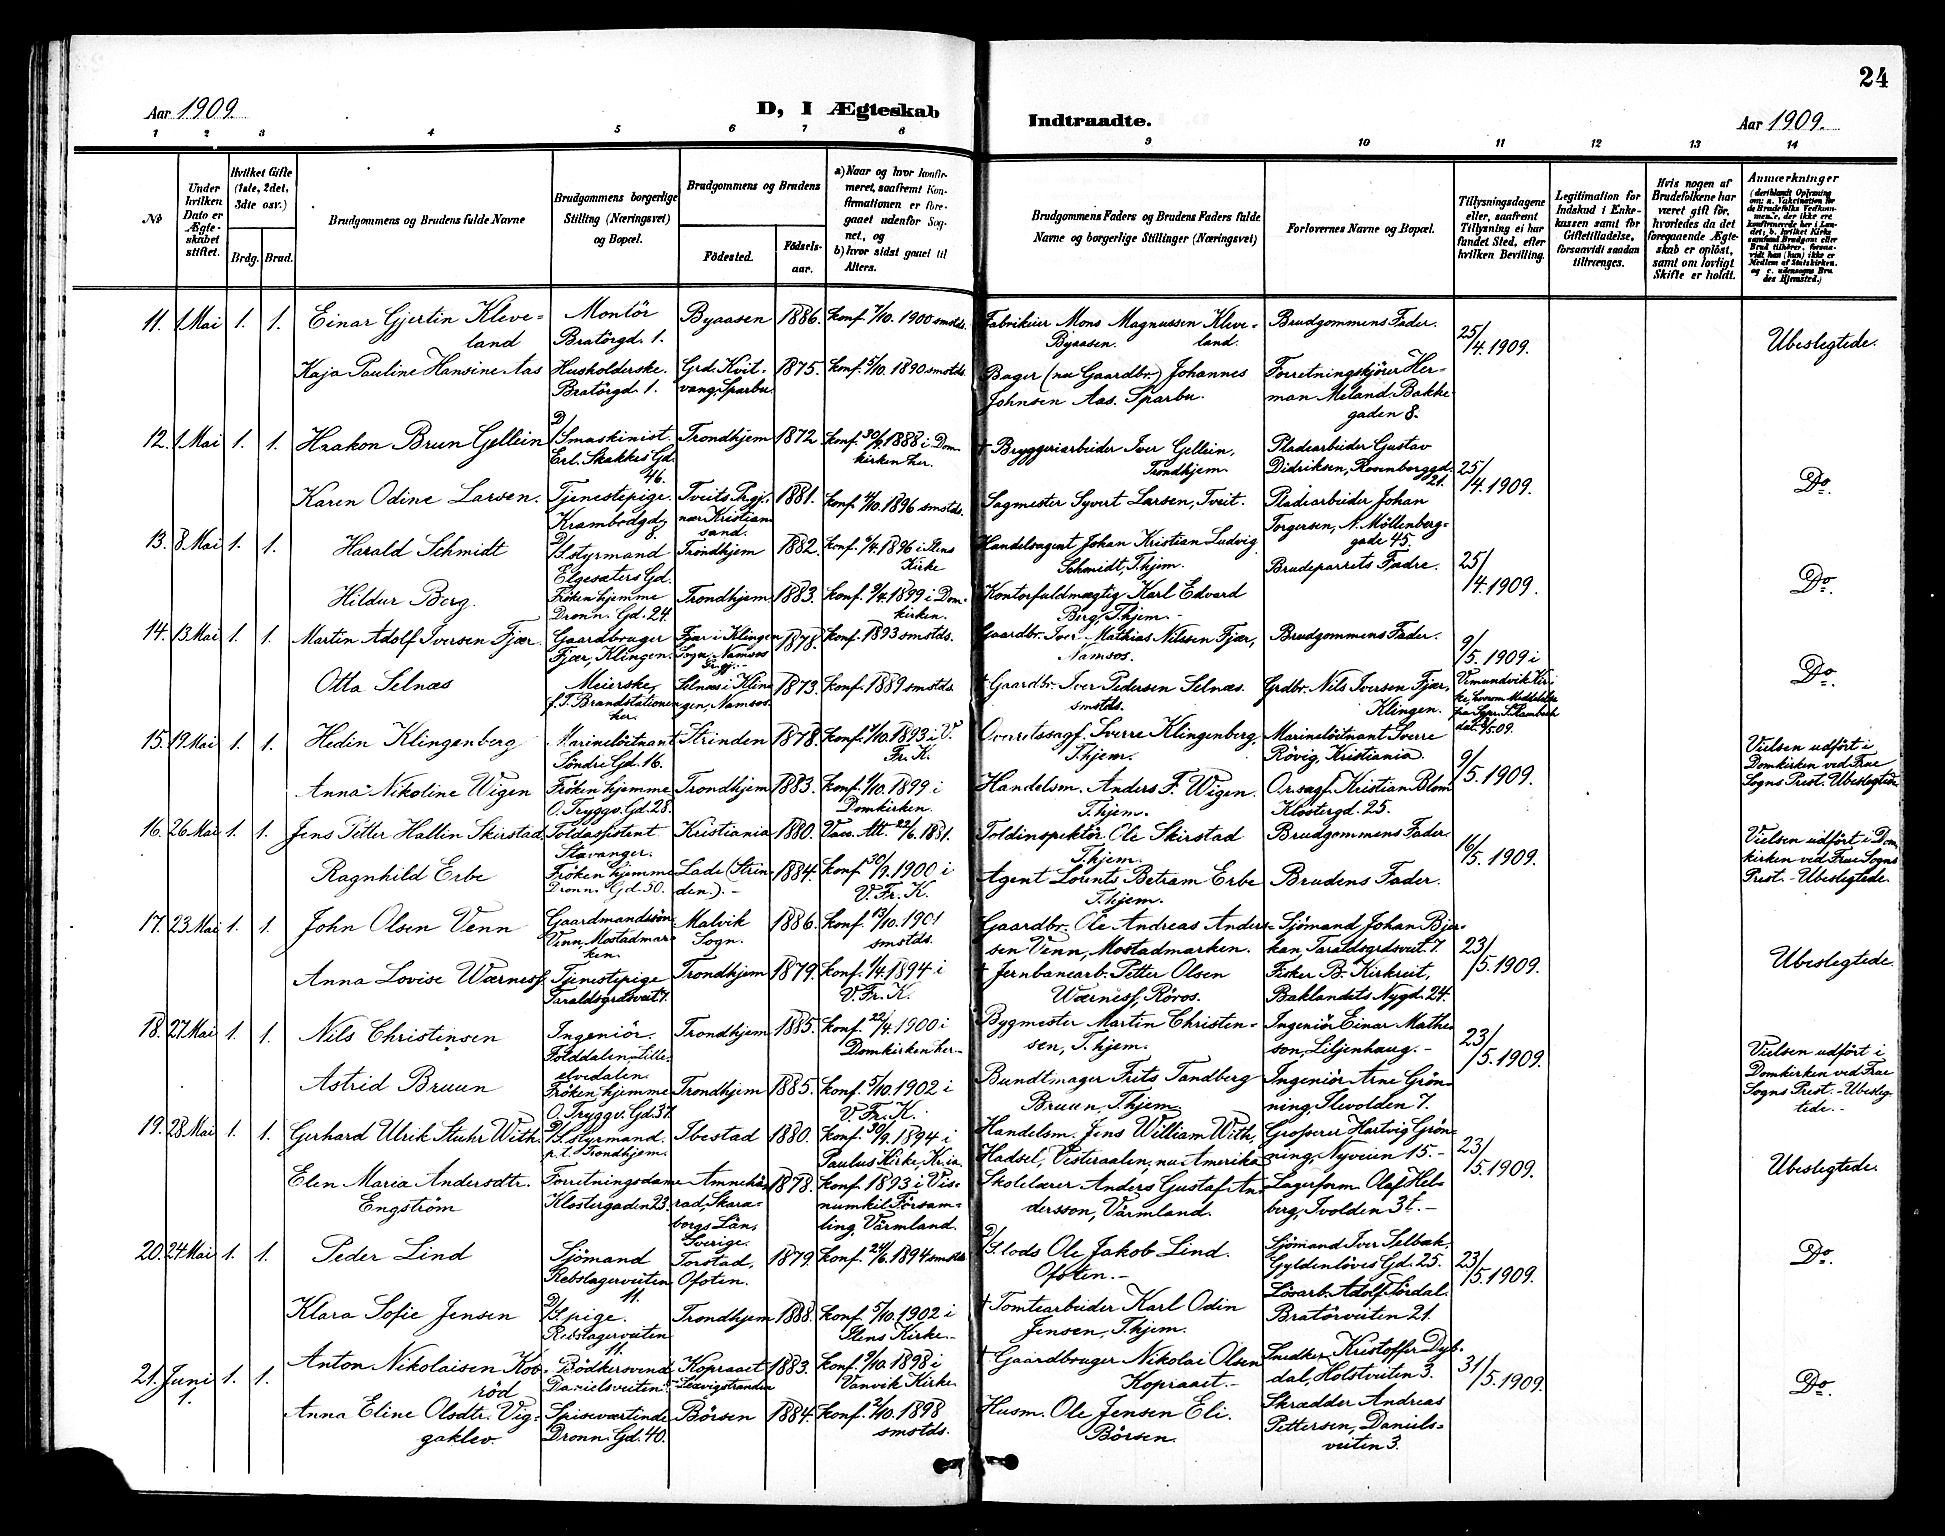 24
Aar 1909.
D, I Ægteskab
Indtraadte.
Aar 1909.
1 2 3 4 5 6 7 8 9 10 11 12 13 14
No
Under hvilken Dato er Ægteskabet stiftet.
Hvilket Gifte (1ste, 2det, 3die osv.)
Brdg. Brud.
Brudgommens og Brudens fulde Navne
Brudgommens borgerlige Stilling (Næringsvei) og Bopæl.
Brudgommens og Brudens
Fødested.
Fødselsaar.
a) Naar og hvor konfirmeret, saafremt Konfirmationen er foregaaet udenfor Sognet, og
b) hvor sidst gaaet til Alters.
Brudgommens Faders og Brudens Faders fulde Navne og borgerlige Stillinger (Næringsvei)
Forlovernes Navne og Bopæl.
Tillysningsdagene eller, saafremt Tillysning ei har fundet Sted, efter hvilken Bevilling.
Legitimation for Indskud i Enkekassen samt for Giftetilladelse, forsaavidt saadan tiltrænges.
Hvis nogen af Brudefolkene har været gift før, hvorledes da det foregaaende Ægteskab er opløst, samt om lovligt Skifte er holdt.
Anmærkninger
11. 1. Mai 1. 1. Einar Gjertin Kleveland
Montör Bratörgd. 1.
Byaasen 1886. Konf. 7/10. 1900 smstds.
Fabrikeier Mons Magnussen Kleveland. Byaasen.
Brudgommens Fader.
25/4. 1909.
Ubeslegtede.
Kaja Pauline Hansine Aas
Husholderske. Bratörgd. 1.
Grd. Kvitvang, Sparbu 1875. Konf. 5/10. 1890 smstds.
Bager (nu Gaardbr.) Johannes Johnsen Aas. Sparbu.
Forretningskjörer Herman Meland. Bakkegaden 8.
12. 1. Mai 1. 1. Haakon Brun Gellein
D/Smaskinist. Erl. Skakkes Gd. 46.
Trondhjem 1872 Konf. 30/9. 1888 i Domkirken her.
† Bryggeriarbeider Iver Gellein, Trondhjem.
Pladsarbeider Gustav Didriksen, Rosenborggd. 21.
25/4. 1909.
Do.
Karen Odine Larsen.
Tjenestepige. Krambodgd. 8.
Tveits Prgj. nær Kristiansand. 1881. Konf. 4/10. 1896 smstds.
Sagmester Syvert Larsen, Tveit.
Pladsarbeider Johan Torgersen, N. Möllenberggade 45.
13. 8. Mai 1. 1. Harald Schmidt
D/S. styrmand Elgesæters Gd.
Trondhjem 1882. Konf. 1896 i Ilens Kirke
Handelsagent Johan Kristian Ludvig Schmidt, T.hjem.
Brudeparrets Fædre.
25/4. 1909.
Do.
Hildur Berg.
Fröken hjemme Dronn. Gd. 24.
Trondhjem 1883. Konf. 9/4. 1899 i Domkirken.
Kontorfuldmægtig Karl Edvard Berg, T.hjem.
14. 13. Mai 1. 1. Martin Adolf Iversen Fjær.
Gaardbruger Fjær, Klingen.
Fjær i Klingen Sogn, Namsos Prgj. 1878. Konf. 1893 smstds.
Gaardbr. Iver Mathias Nilssen Fjær, Namsos.
Brudgommens Fader.
9/5. 1909 i Vemundvik Kirke,
Do.
Otta Selnæs
Meierske, f. T. Brandstationen her.
Selnæs i Klingen, Namsos. 1873. Konf. 1889 smstds.
† Gaardbr. Iver Pedersen Selnæs. smstds.
Grdbr. Nils Iversen Fjær, Klingen.
15. 19. Mai 1. 1. Hedin Klingenberg
Marinelöitnant Söndre Gd. 16.
Strinden 1878. Konf. 1/10. 1893 i V. Fr. K.
Overretssagf. Sverre Klingenberg, T.hjem.
Marinelöitnant Sverre Rövig, Kristiania
9/5. 1909.
Vielsen udfört i Domkirken ved Frue Sogns Prest. Ubeslegtede
Anna Nikoline Wigen
Fröken hjemme O. Tryggv. Gd. 28.
Trondhjem 1883. Konf. 1/10. 1899 i Domkirken.
Handelsm. Anders F. Wigen. T.hjem.
O.r.sagf. Kristian Blom Klostergd. 25.
16. 26. Mai 1. 1. Jens Petter Hallin Skirstad
Toldassistent Stavanger.
Kristiania 1880. Vacc. Att. 22/6. 1881.
Toldinspektör Ole Skirstad T.hjem.
Brudgommens Fader.
16/5. 1909.
Vielsen udfört i Domkirken ved Frue Sogns Prest. - Ubeslegtede.
Ragnhild Erbe
Fröken hjemme Dronn. Gd. 50.
Lade (Strinden.) - 1884. Konf. 30/9. 1900 i V. Fr. K.
Agent Lorents Betram Erbe T.hjem.
Brudens Fader.
17. 23. Mai 1. 1. John Olsen Venn
Gaardmandssön. Venn, Mostadmarken.
Malvik Sogn. 1886. Konf. 13/10. 1901 smstds.
Gaardbr. Ole Andreas Andersen Venn, Mostadmarken.
Sjömand Johan Bjerkan, Taraldsgrdsveit. 7.
23/5. 1909.
Ubeslegtede.
Anna Lovise Wærness.
Tjenestepige Taraldsgrdsveit 7.
Trondhjem 1879. Konf. 1/4. 1894 i V. Fr. K.
† Jernbanearb. Petter Olsen Wærness, Röros.
Fisker B. Kirkreit, Baklandets Nygd. 24.
18. 27. Mai 1. 1. Nils Christensen
Ingeniör. Folddalen, Lilleelvedalen.
Trondhjem 1885. Konf. 22/4. 1900 i Domkirken her. -
Bygmester Martin Christensen, T.hjem.
Ingeniör Einar Matheson, Liljenhaug. -
23/5. 1909.
Vielsen udfört i Domkirken ved Frue Sogns Prest. - Ubeslegtede. -
Astrid Bruun
Fröken hjemme O. Tryggv. Gd. 37.
Trondhjem 1885. Konf. 5/10. 1902 i V. Fr. K.
Bundtmager Frits Tandberg Bruun, T.hjem
Ingeniör Arne Grönning, Ilevolden 7.
19. 28. Mai 1. 1. Gerhard Ulrik Stuhr With.
D/S. styrmand. p. t. Trondhjem.
Ibestad 1880. Konf. 30/9. 1894 i Paulus Kirke, Kr.ia.
Handelsm. Jens William With, Hadsel, Vesteraalen, nu Amerika
Grosserer Hartvig Grönning, Nyveien 15. -
23/5. 1909.
Ubeslegtede.
Elen Maria Andersdtr. Engström
Forretningsdame Klostergaden 23.
Amnehärad, Skaraborgs Län, Sverige. 1878. Konf. 1893 i Visnumkil Församling, Värmland.
Skolelærer Anders Gustaf Andersson, Värmland.
Lagerform. Olaf Helberg, Ivolden 3 f. -
20. 24. Mai 1. 1. Peder Lind
Sjömand Rebslagerveiten 11.
Torstad, Ofoten. 1879. Konf. 24/6. 1894 smstds
D/S. lods Ole Jakob Lind. Ofoten. -
Sjömand Iver Selbæk, Gyldenlöves Gd. 25.
23/5. 1909.
Do.
Klara Sofie Jensen
D/S. pige. Rebslagerveiten 11.
Trondhjem 1888. Konf. 5/10. 1902 i Ilens Kirke. -
† Tomtearbeider Karl Odin Jensen, T.hjem.
Lösarb. Adolf Sördal. Bratörveiten 21.
21. Juni 1. 1. 1. Anton Nikolaisen Kobröd
Bödkersvend Danielsveiten.
Kopraaet Leksvigstranden 1883. Konf. 9/10. 1898 i Vanvik Kirke
† Gaardbruger Nikolai Olsen Kopraaet. -
Snedker Kristoffer Dybdal, Holstveiten 3.
31/5. 1909.
Do.
Anna Eline Olsdtr. Viggaklev.
Spiseværtinde Dronn. Gd. 40.
Börsen 1884. Konf. 2/10. 1898 smstds.
Husm. Ole Jensen Eli. Börsen.
Skrædder Andreas Pettersen, Danielsveiten 3.